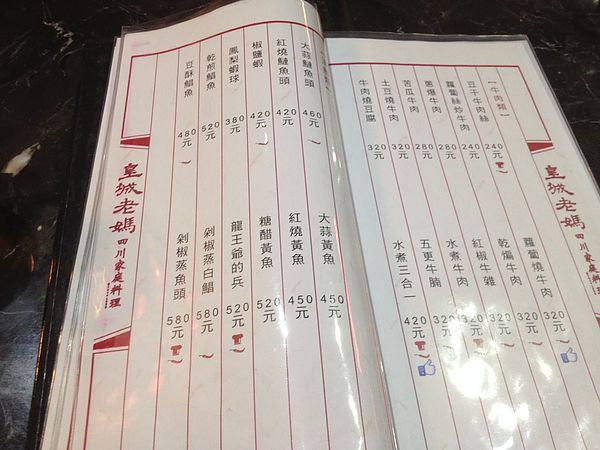 皇城老媽 四川家庭料理
一牛肉類一
豆干牛肉絲 240元
蘿蔔絲炒牛肉 240元
蔥爆牛肉 280元
苦瓜牛肉 280元
土豆燒牛肉 320元
牛肉燒豆腐 320元
蘿蔔燒牛肉 320元
乾煸牛肉 320元
紅椒牛雜 320元
水煮牛肉 320元
五更牛腩 320元
水煮三合一 420元
大蒜鰱魚頭 460元
紅燒鰱魚頭 420元
椒鹽蝦 420元
鳳梨蝦球 380元
乾煎鯧魚 520元
豆酥鯧魚 480元
大蒜黃魚 450元
紅燒黃魚 450元
糖醋黃魚 520元
龍王爺的兵 520元
剁椒蒸白鯧 580元
剁椒蒸魚頭 580元
皇城老媽 四川家庭料理